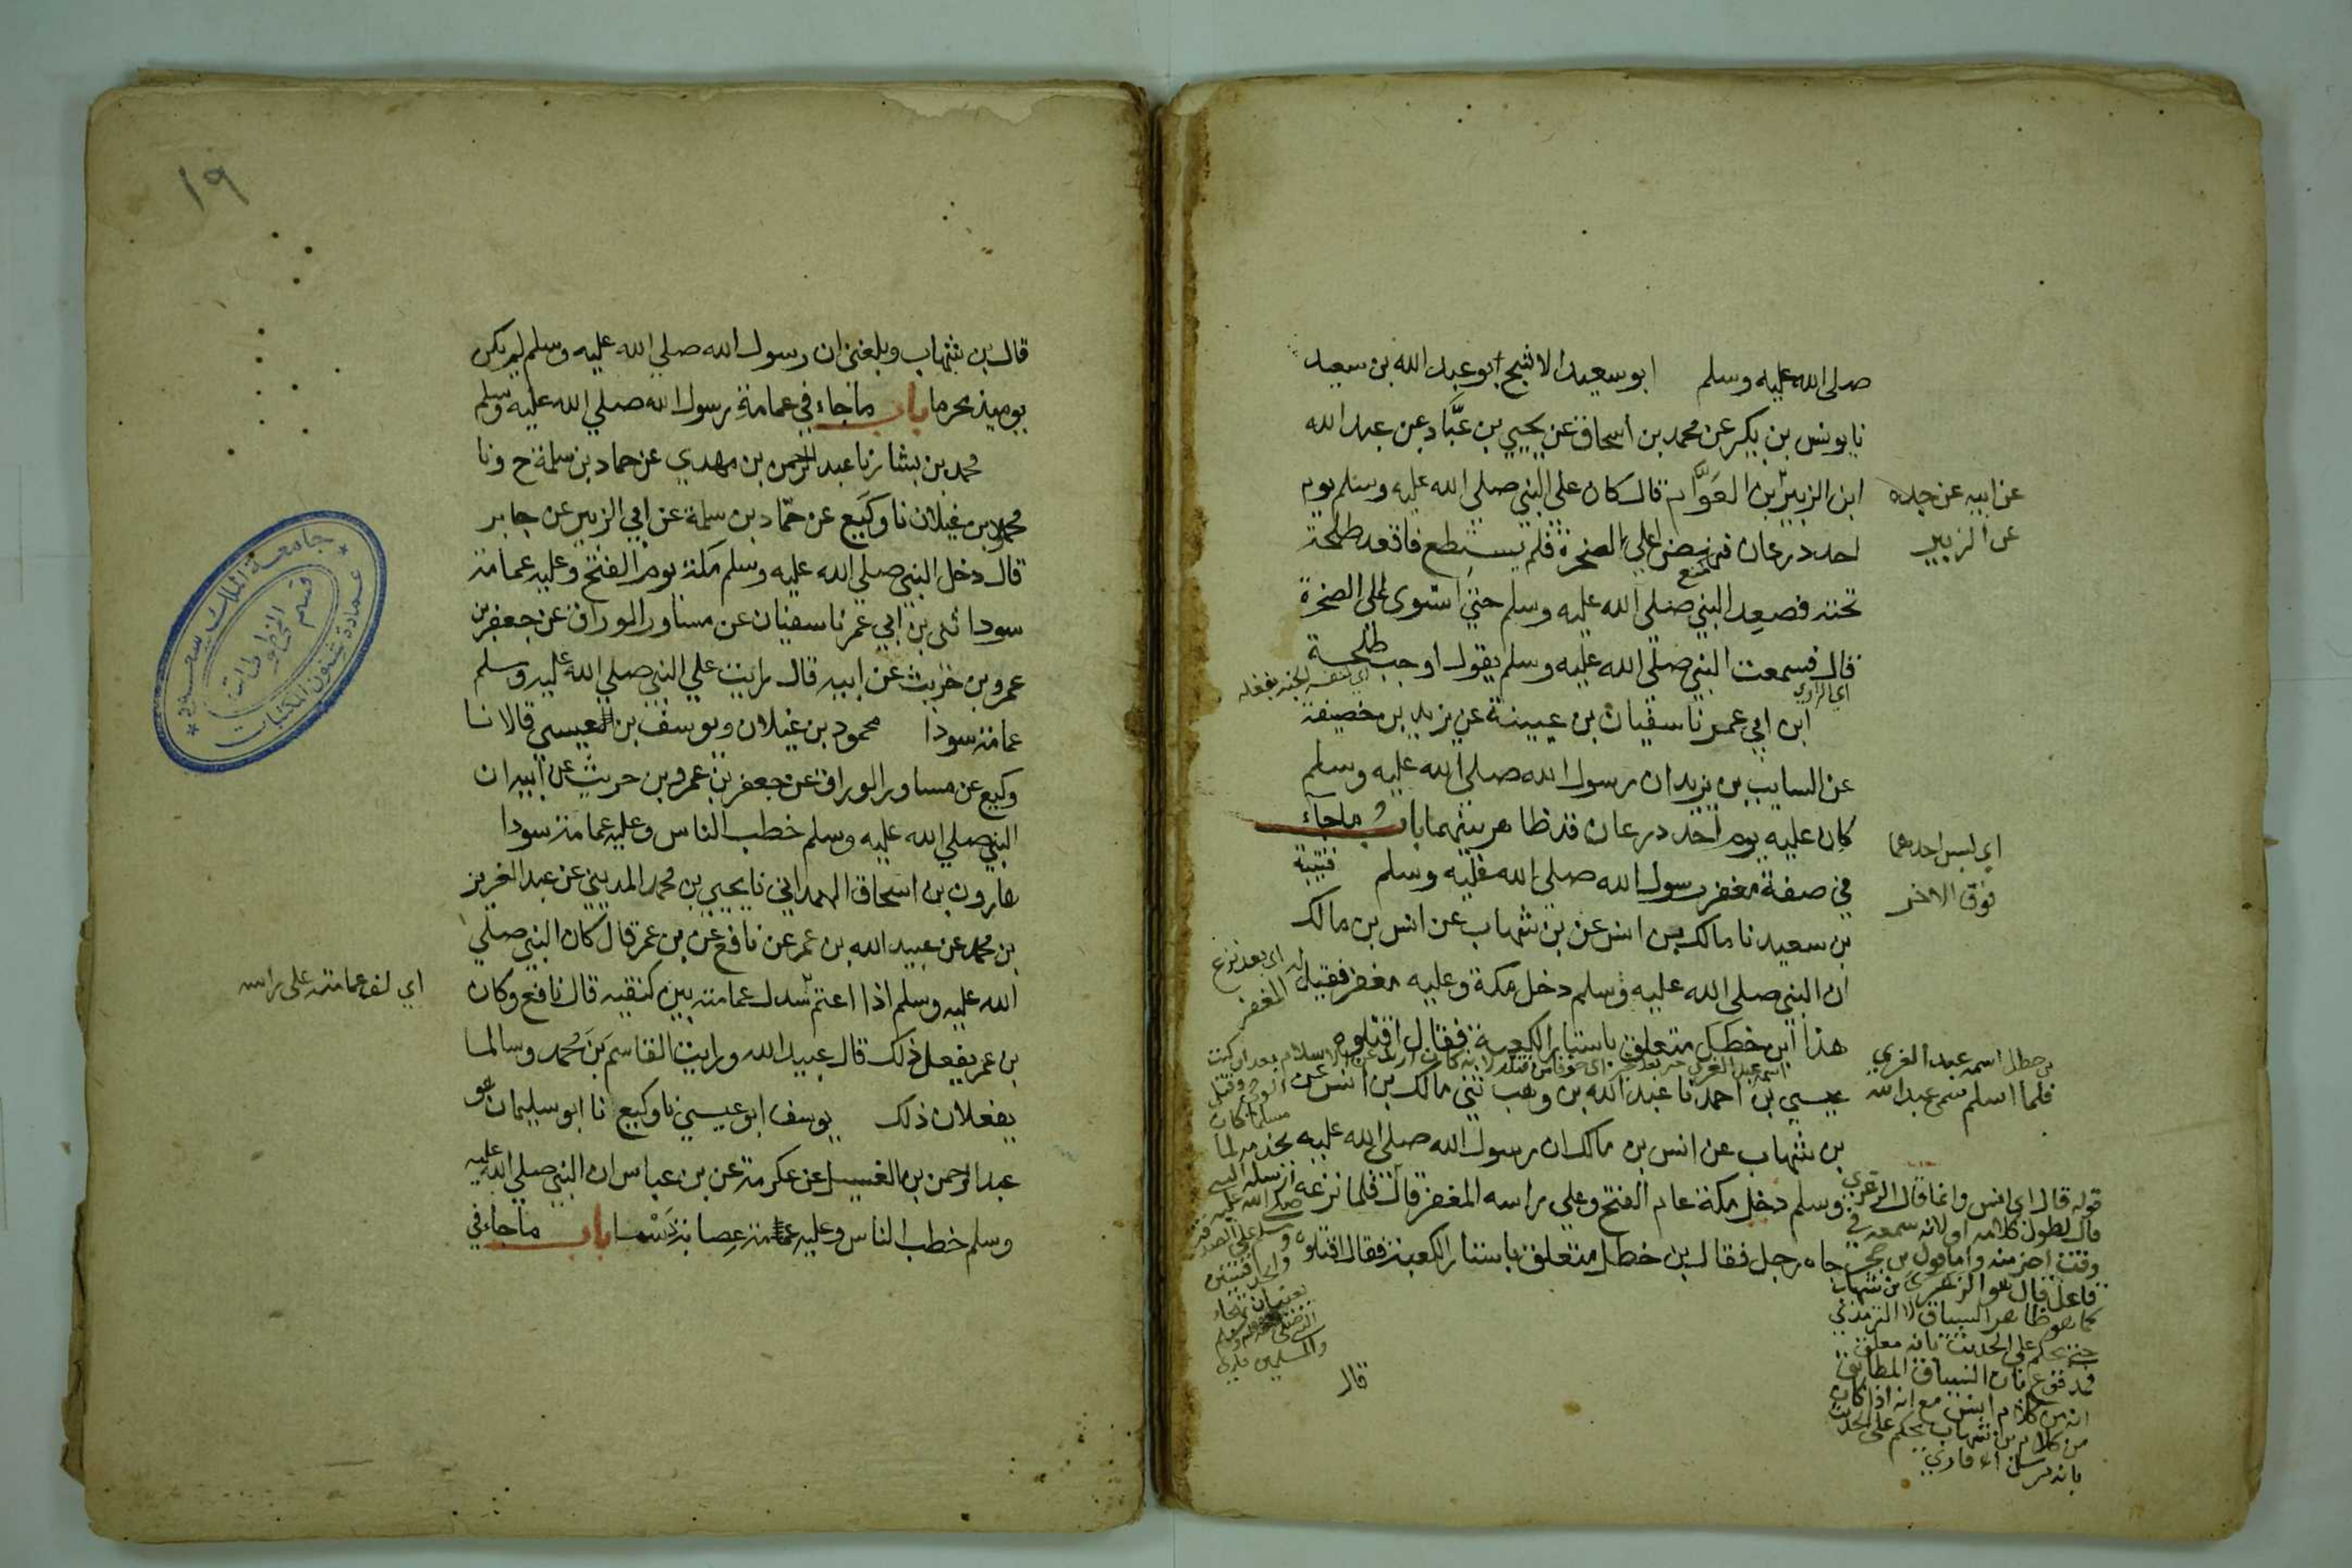 صلى الله عليه وسلم ابو سعيد الاشج ابو عبد الله بن سعيد
نا يونس بن بكير عن محمد بن اسحاق عن يحيي بن عبَّاد عن عبد الله
ابن الزبير بن العوَّام قال كان على النبي صلى الله عليه وسلم يوم
احد درعان فنهض الي الصخرة فلم يستطع فاقعد طلحة
تحته فصعد النبي صلى الله عليه وسلم حتي استوى على الصخرة
قال فسمعت النبي صلى الله عليه وسلم يقول اوجب طلحة
ابن ابي عمر نا سفيان بن عيينة عن يزيد بن خصيفة
عن السايب بن يزيد ان رسول الله صلى الله عليه وسلم
كان عليه يوم احد درعان قد ظاهر بينهما باب ما جاء
في صفة مغفر رسول الله صلى الله عليه وسلم قتيبة
بن سعيد نا مالك بن انس عن بن شهاب عن انس بن مالك
ان النبي صلى الله عليه وسلم دخل مكة وعليه مغفر فقيل له
هذا ابن خطل متعلق باستار الكعبة فقال اقتلوه
عيسي بن احمد نا عبد الله بن وهب ثني مالك بن انس عن
بن شهاب عن انس بن مالك ان رسول الله صلى الله عليه
وسلم دخل مكة عام الفتح وعلي راسه المغفر قال فلما نزعه
جاه رجل فقال بن خطل متعلق باستار الكعبة فقال اقتلوه
قال
عن ابيه عن جده
عن الزبير
اي الراوي
اي لبس احدهما
فوق الاخر
اي بعد نزع
المغفر
بن خطل اسمه عبد العزي
فلما اسلم سمي عبد الله
قوله قال اي انس وانما قال الزهري
قال لطول كلامه او لانه سمعه في
وقت اخر منه واما قول بن حجر
فاعل قال هو الزهري بن شهاب
كما هو ظاهر السياق لا الترمذي
حتي يحكم على الحديث بانه معلق
فمدفوع بان السياق المطابق
انه من كلام انس مع انه اذا كان
من كلام بن شهاب يحكم على الحديث
بانه مرسل اه قاري
١٩
قال بن شهاب وبلغني ان رسول الله صلي الله عليه وسلم لم يكن
يوميذ محرما باب ما جاء في عمامة رسول الله صلي الله عليه وسلم
محمد بن بشار نا عبد الرحمن بن مهدي عن حماد بن سلمة ح ونا
محمود بن غيلان نا وكيع عن حمَّاد بن سلمة عن ابي الزبير عن جابر
قال دخل النبي صلي الله عليه وسلم مكة يوم الفتح وعليه عمامة
سودا ثني بن ابي عمر نا سفيان عن مساور الوراق عن جعفر بن
عمرو بن حريث عن ابيه قال رايت علي النبي صلي الله عليه وسلم
عمامة سودا محمود بن غيلان ويوسف بن العيسي قالا نا
وكيع عن مساور الوراق عن جعفر بن عمرو بن حريث عن ابيه ان
النبي صلي الله عليه وسلم خطب الناس وعليه عمامة سودا
هارون بن اسحاق الهمداني نا يحيي بن محمد المديني عن عبد العزيز
بن محمد عن عبيد الله بن عمر عن نافع عن بن عمر قال كان النبي صلي
الله عليه وسلم اذا اعتم سدل عمامته بين كتفيه قال نافع وكان
بن عمر يفعل ذلك قال عبيد الله ورايت القاسم بن محمد وسالما
يفعلان ذلك يوسف ابو عيسي نا وكيع نا ابو سليمان هو
عبد الرحمن بن الغسيل عن عكرمة عن بن عباس ان النبي صلي الله عليه
وسلم خطب الناس وعليه عصابة دسما باب ما جاء في
اي لف عمامته على راسه
جامعة الملك سعود
عمادة شئون المكتبات
قسم المخطوطات